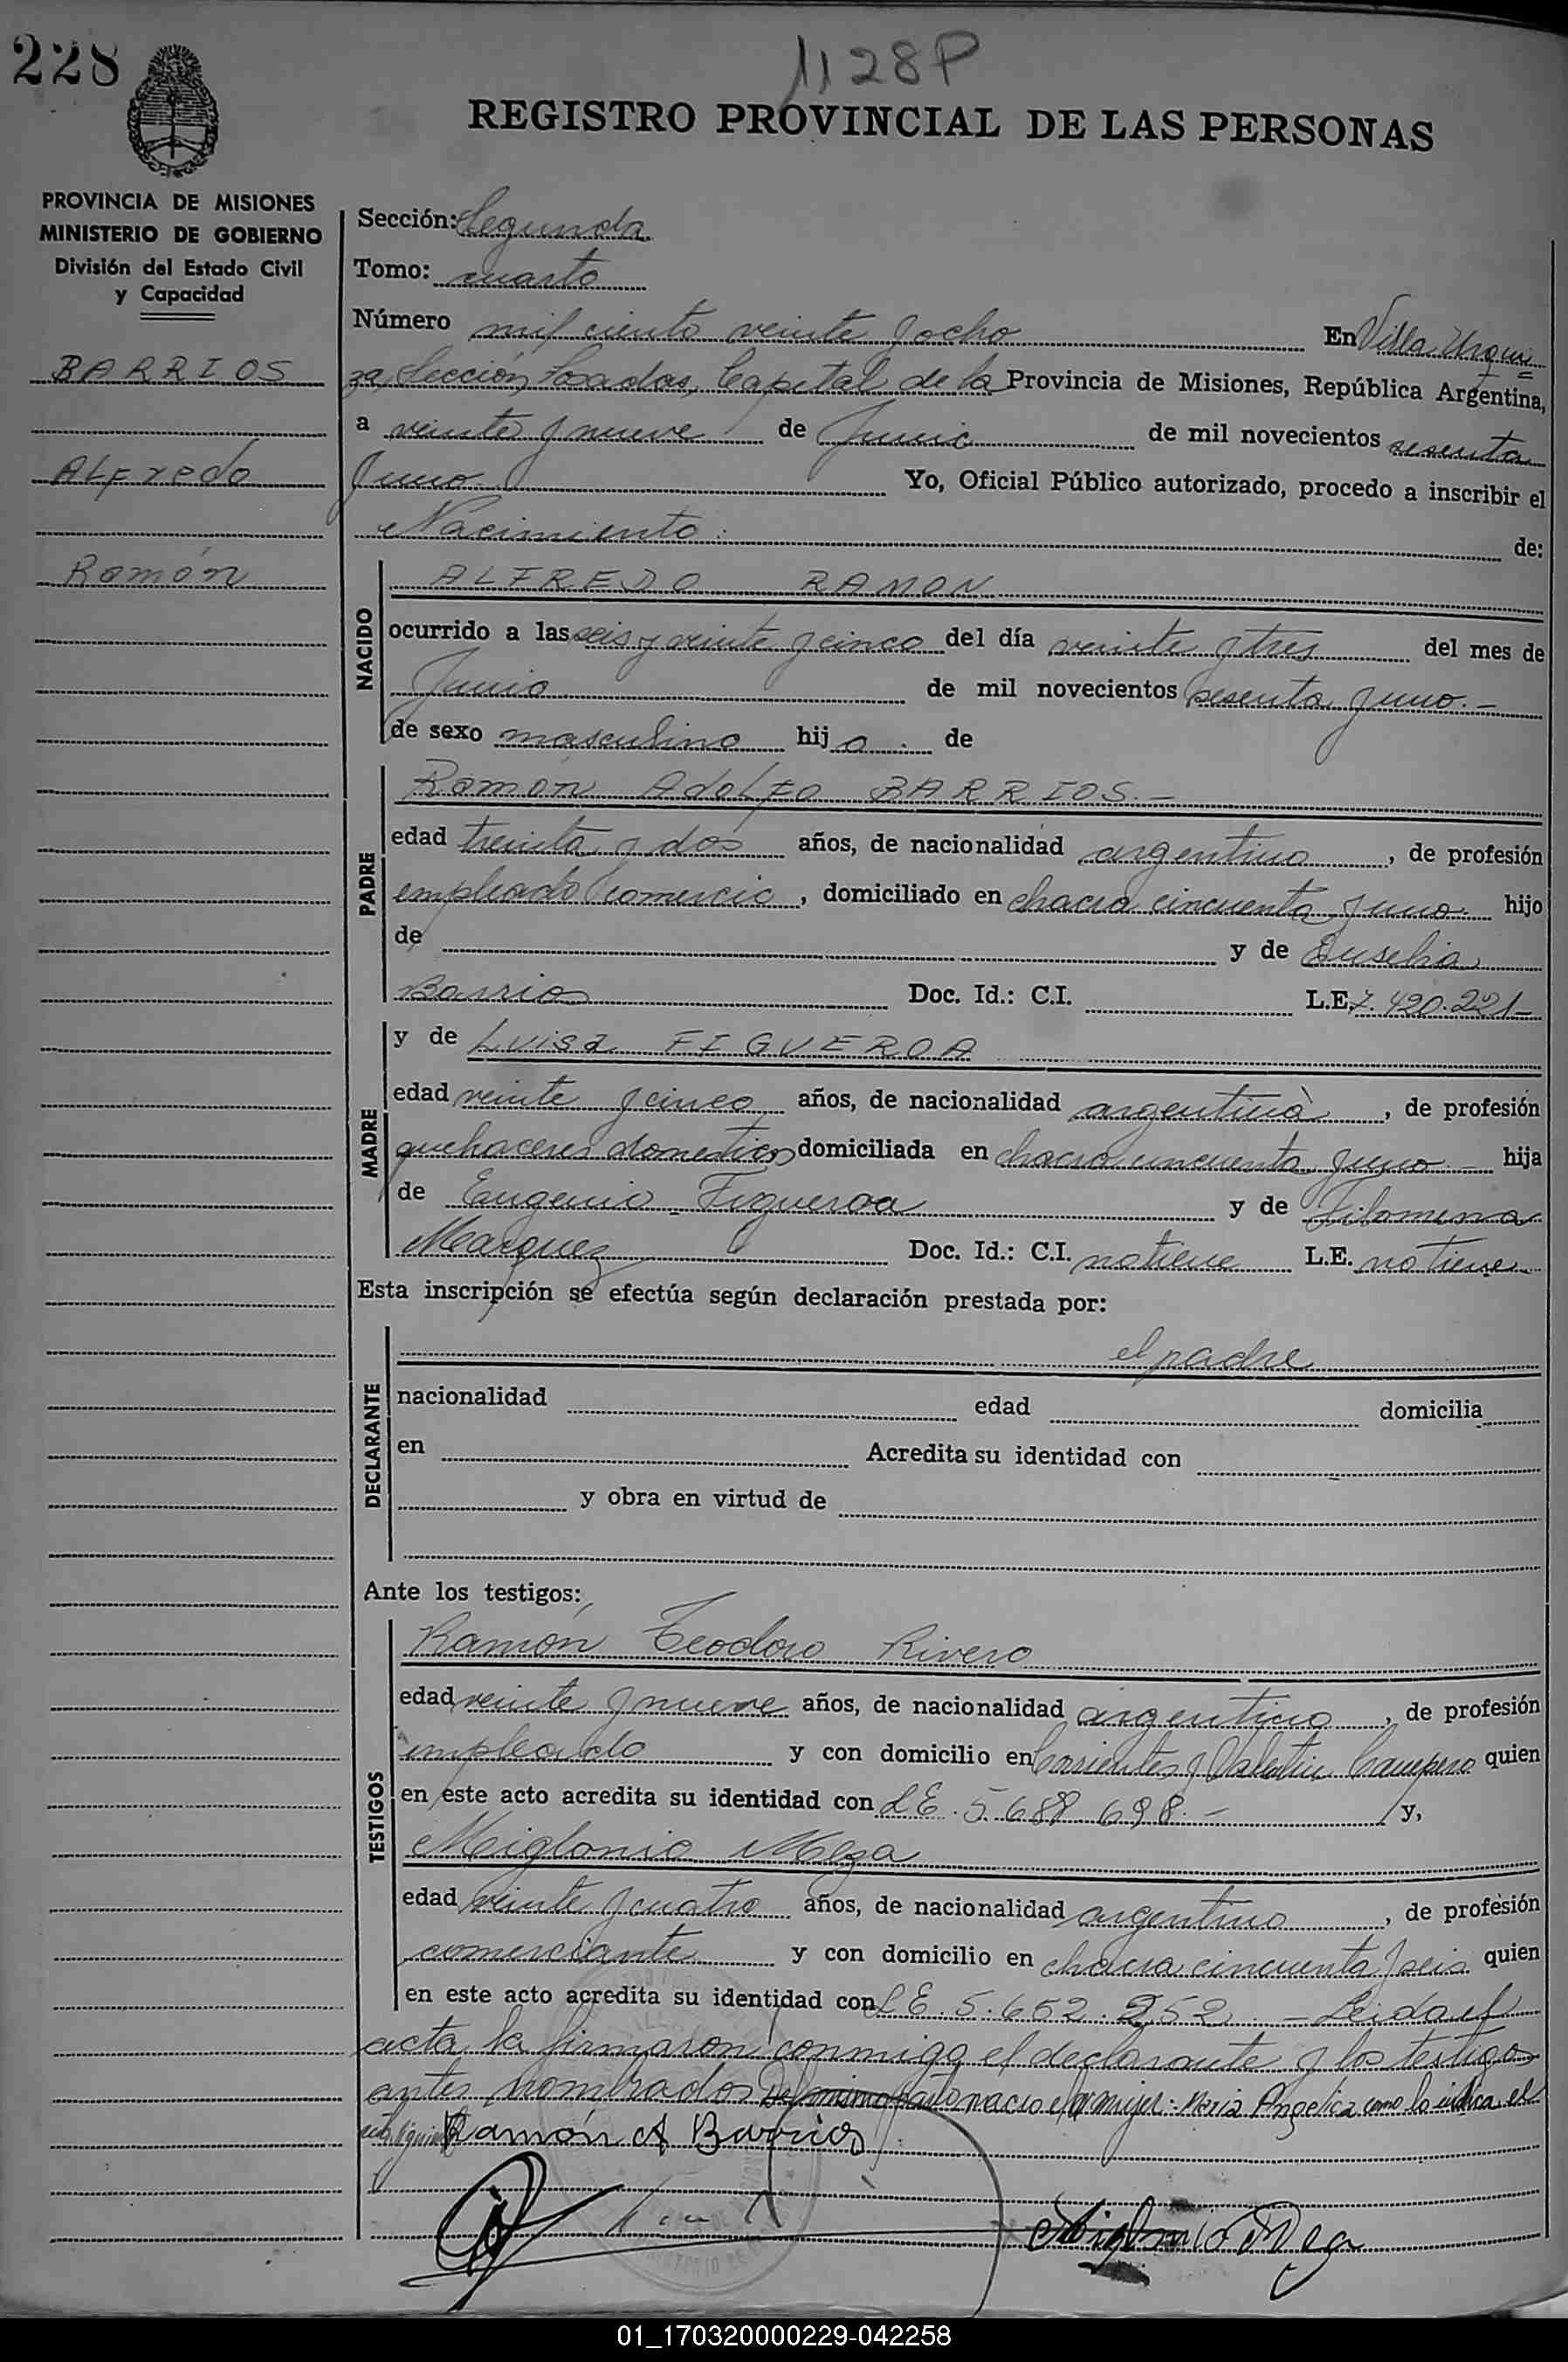 228
1128P
REGISTRO PROVINCIAL DE LAS PERSONAS
PROVINCIA DE MISIONES
MINISTERIO DE GOBIERNO
División del Estado Civil
y Capacidad
BARRIOS
Alfredo
Ramón
Sección: Segunda
Tomo: cuarto
Número mil ciento veinte y ocho En Villa Urqui
za, Sección Posadas, Capital de la Provincia de Misiones, República Argentina,
a veinte y nueve de Junio de mil novecientos sesenta
y uno. Yo, Oficial Público autorizado, procedo a inscribir el
Nacimiento: de:
NACIDO
ALFREDO RAMON
ocurrido a las seis y veinte y cinco del día veinte y tres del mes de
Junio de mil novecientos sesenta y uno.-
de sexo masculino hijo. de
PADRE
Ramón Adolfo BARRIOS.-
edad treinta y dos años, de nacionalidad argentino, de profesión
empleado comercio, domiciliado en chacra cincuenta y uno. hijo
de y de Eusebia
Barrios Doc. Id.: C.I. L.E. 7.420.221-
MADRE
y de Luisa FIGUEROA
edad veinte y cinco años, de nacionalidad argentina, de profesión
quehaceres domesticos domiciliada en chacra cincuenta y uno.- hija
de Eugenio Figueroa y de Filomena
Marquez Doc. Id.: C.I. no tiene L.E. no tiene
Esta inscripción se efectúa según declaración prestada por:
DECLARANTE
el padre
nacionalidad edad domicilia
en Acredita su identidad con
y obra en virtud de
Ante los testigos:
TESTIGOS
Ramón Teodoro Rivero
edad veinte y nueve años, de nacionalidad argentino, de profesión
empleado y con domicilio en Corrientes y quien
en este acto acredita su identidad con LE. 5.688.698.- y,
Miglonio Meza
edad veinte y cuatro años, de nacionalidad argentino, de profesión
comerciante y con domicilio en chacra cincuenta y seis quien
en este acto acredita su identidad con LE. 5.652.252.- Leida el
acta la firmaron conmigo el declarante y los testigos
antes nombrados Del mismo parto nacio mujer: Maria Angelica como lo indica el
acta Ramón A Barrios
Miglonio Meza
01_170320000229-042258